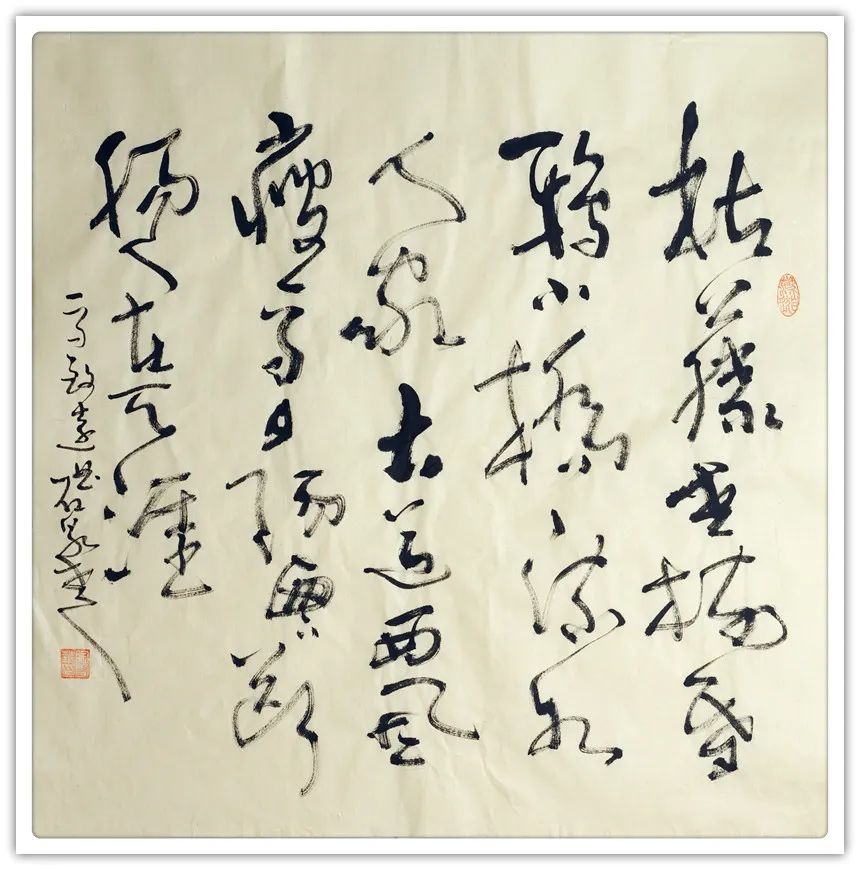 枯藤老樹昏
鴉小橋流水
人家古道西風
瘦馬夕陽西下斷
腸人在天涯
馬致遠曲石